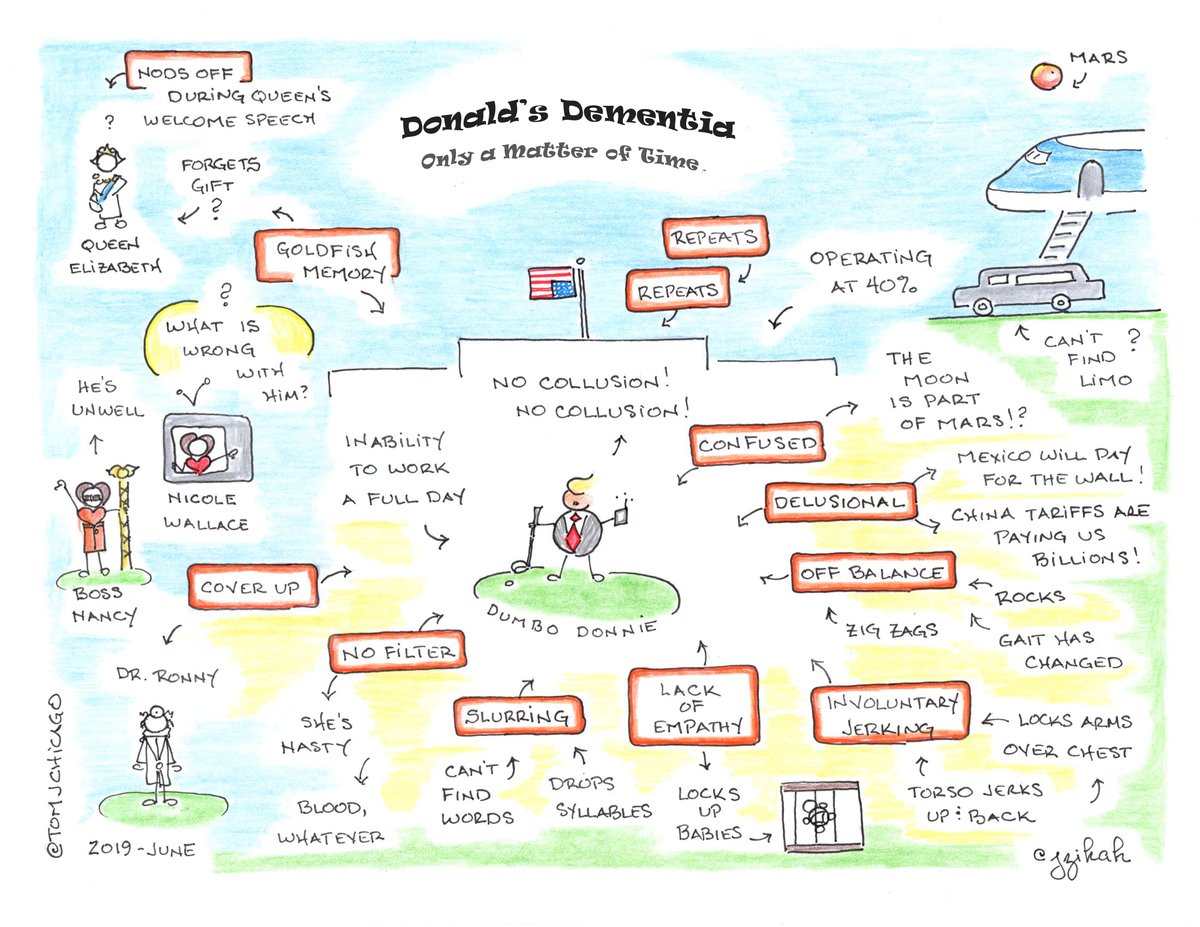 Donald's Dementia
Only a Matter of Time
NODS OFF
DURING QUEEN'S
WELCOME SPEECH
?
FORGETS
GIFT
?
QUEEN
ELIZABETH
GOLDFISH
MEMORY
?
WHAT IS
WRONG
WITH
HIM?
HE'S
UNWELL
NICOLE
WALLACE
BOSS
NANCY
COVER UP
DR. RONNY
INABILITY
TO WORK
A FULL DAY
NO COLLUSION!
NO COLLUSION!
REPEATS
REPEATS
OPERATING
AT 40%
MARS
CAN'T ?
FIND
LIMO
THE
MOON
IS PART
OF MARS!?
CONFUSED
DELUSIONAL
MEXICO WILL PAY
FOR THE WALL!
CHINA TARIFFS ARE
PAYING US
BILLIONS!
OFF BALANCE
ROCKS
ZIG ZAGS
GAIT HAS
CHANGED
DUMBO DONNIE
NO FILTER
SHE'S
NASTY
BLOOD,
WHATEVER
SLURRING
CAN'T
FIND
WORDS
DROPS
SYLLABLES
LACK
OF
EMPATHY
LOCKS
UP
BABIES
INVOLUNTARY
JERKING
LOCKS ARMS
OVER CHEST
TORSO JERKS
UP & BACK
@TOMJCHICAGO
2019-JUNE
©jzikah